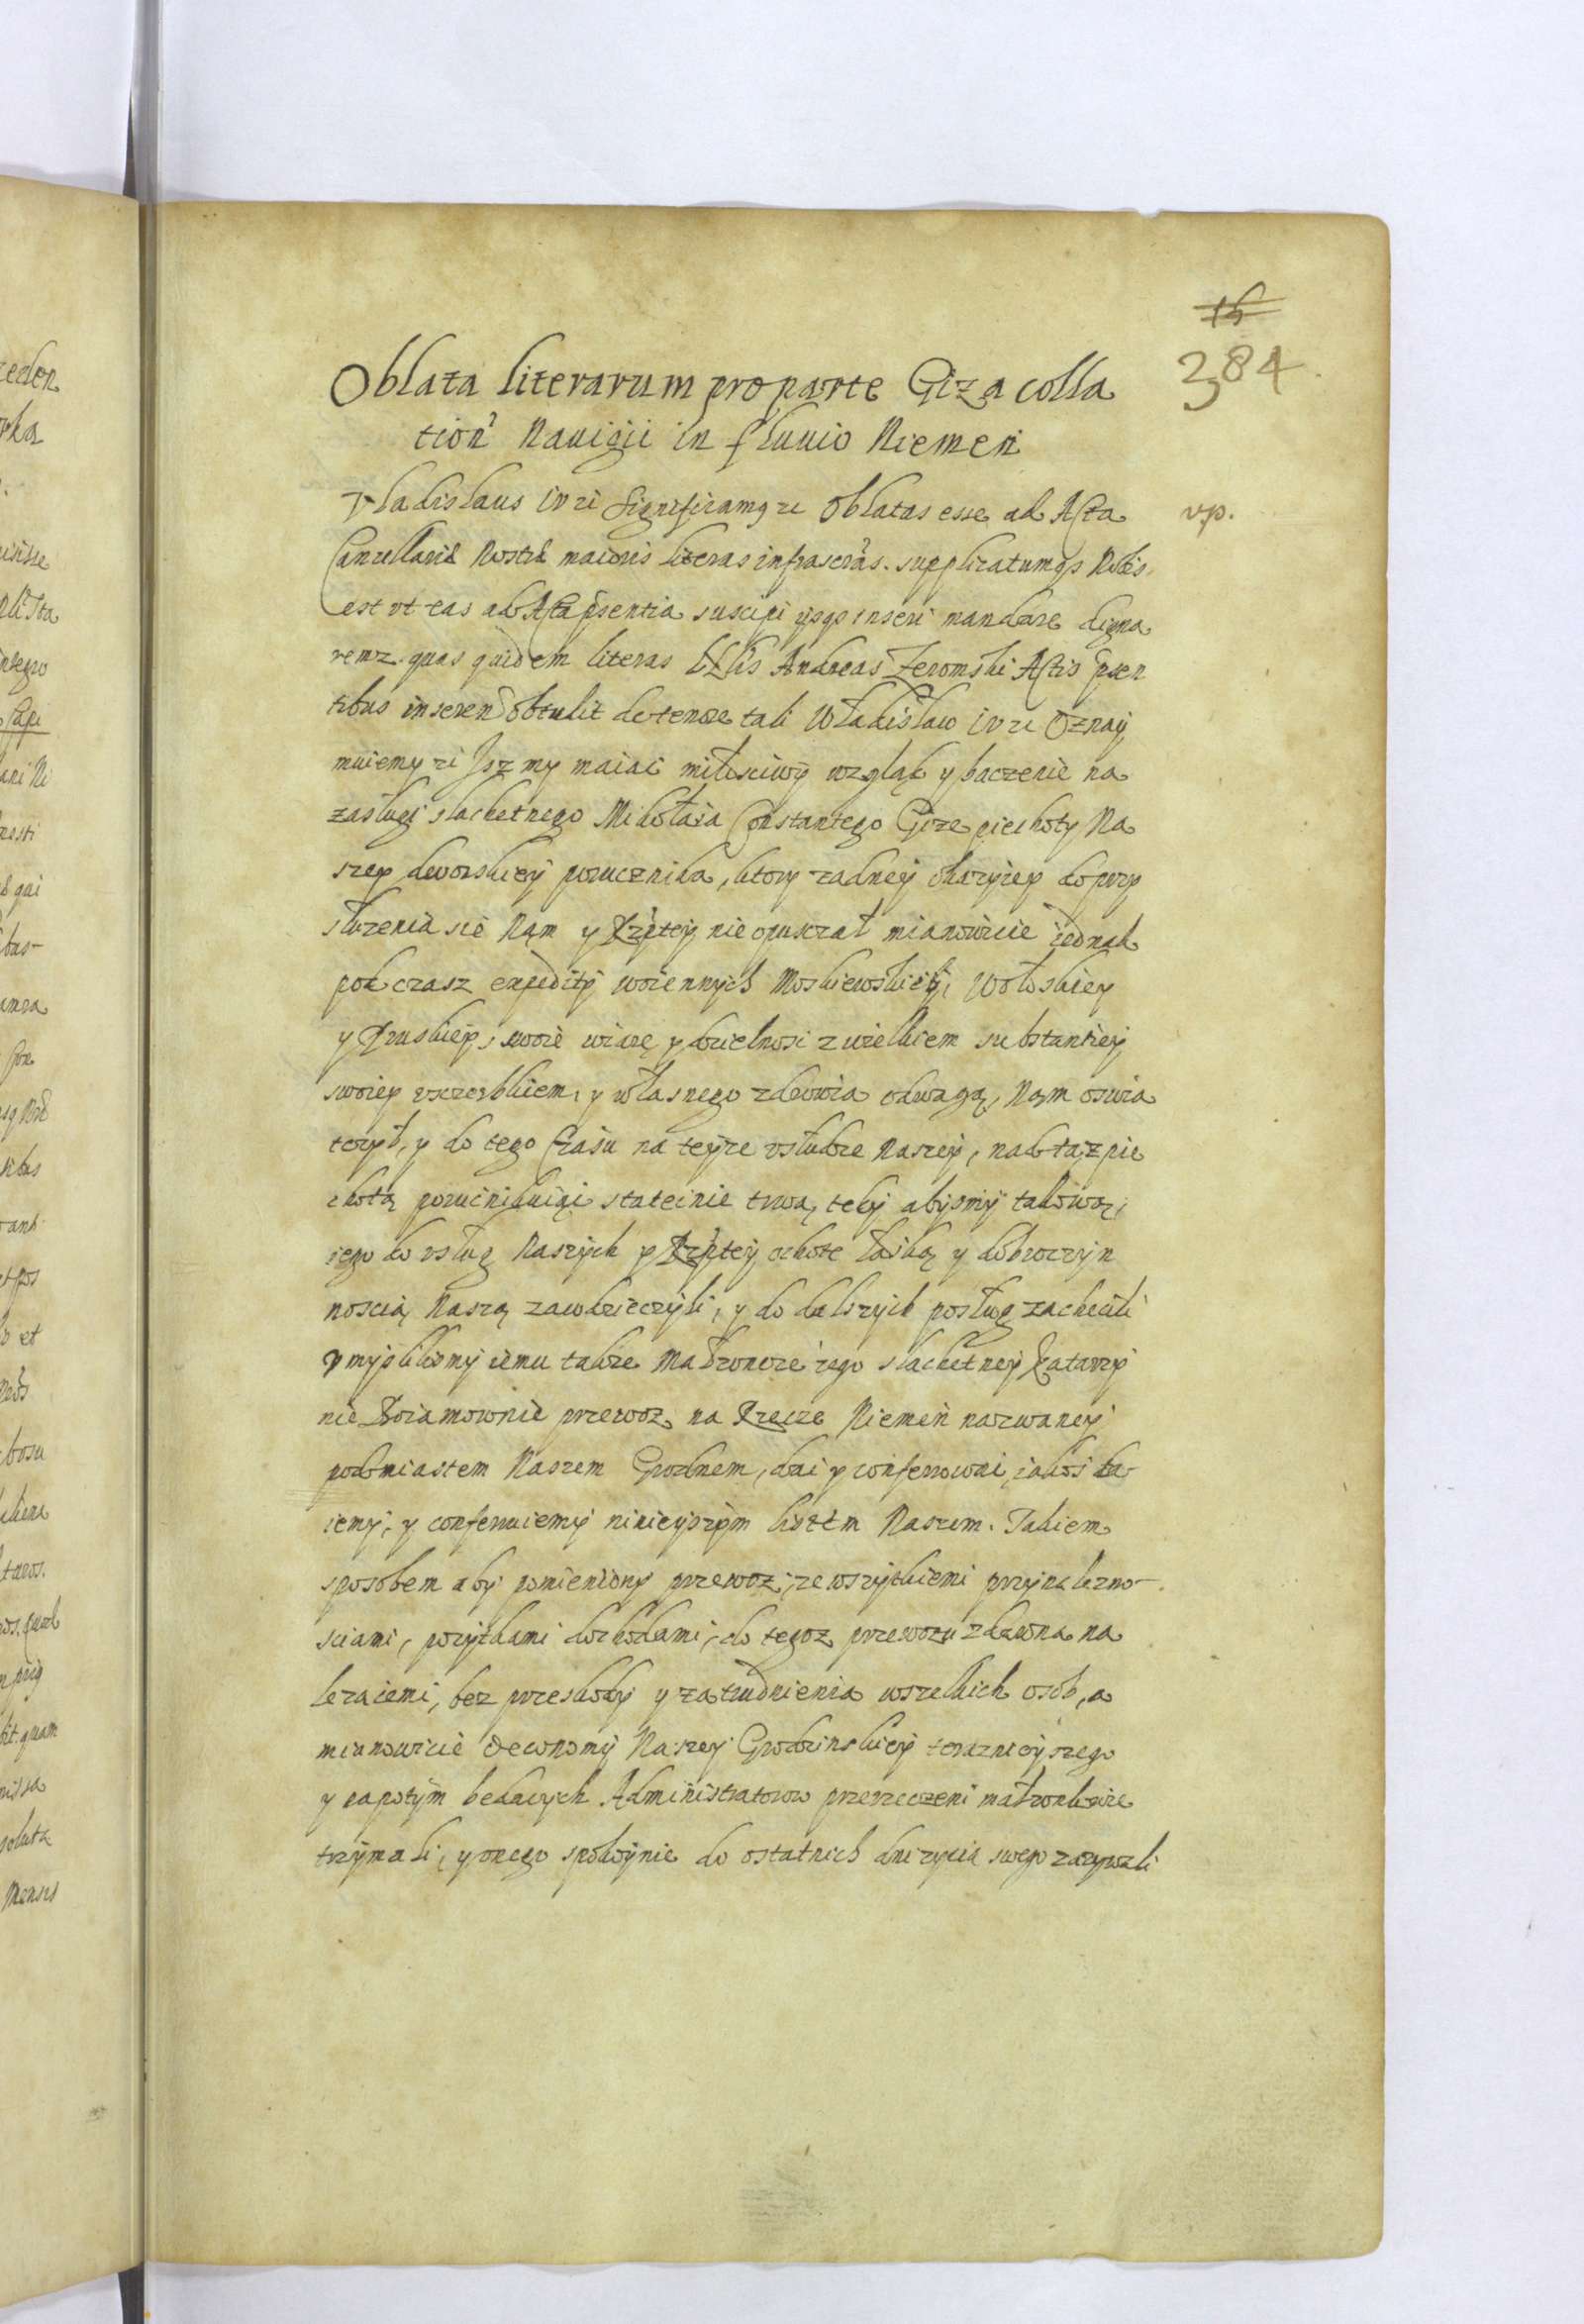 384
Oblata literarum pro parte Giza colla
tion Nauigii in fluuio Niemen
Vladislaus IV etc Significamus etc Oblatas esse ad Acta
vp.
Cancellariæ Nostræ maioris literas infrascrãs. supplicatumqs Nobis
est vt eas ad Acta psentia suscipi ijsqs inseri mandare digna
remur. quas quidem literas Andreas Zeromski Actis psen
tibus inseren obtulit de tenore tali Władisław IV etc Oznay
muiemy etc Jsz my maiąc miłosciwy wzgląd y baczenie na
zasługi slachetnego Mikołaia Constantego Gize piechoty Na
szey dworskiey porucznika, ktory zadney okazyiey do przy
słuzenia sie Nąm y Rzptey nie opuszczał mianowicie iednak
pod czasz expedity woiennych Moskiewskiey, Wołoskiey
y Pruskiey, swoie wiare y dzielnosc z wielkiem substantiey
swoiey vszczerbkiem, y własnego zdrowia odwagą, Nąm oswia
tczył, y do tego Czasu na teyze vsłudze Naszey, nad tąz pie
chotą porucnikuiąc statecnie trwa, tedy abysmy takową
iego do vsług Naszych y Rzptey ochote łaską y dobroczyn
noscią Naszą zawdzieczyli, y do dalszych posług zachecili
vmyslilismy iemu takze Małzonce iego slachetney Katarzy
nie Adamownie przewoz na Rzecze Niemen nazwaney
pod miastem Naszem Grodnem, dac y conferowac, iakos da
iemy, y conferuiemy ninieyszym listem Naszem. Takiem
sposobem aby pomieniony przewoz, ze wszytkiemi przynalezno-
sciami, pozytkami dochodami, do tegoz przewozu zdawna na
lezaiemi, bez przeskody y zatrudnienia wszelkich osob, a
mianowicie Oeconomij Naszey Grodzinskiey teraznieyszego
y napotym bedacych Administratorow przerzeczeni małzonkowie
trzymali, y onego spokoynie do ostatnich dni zycia swego zazywali